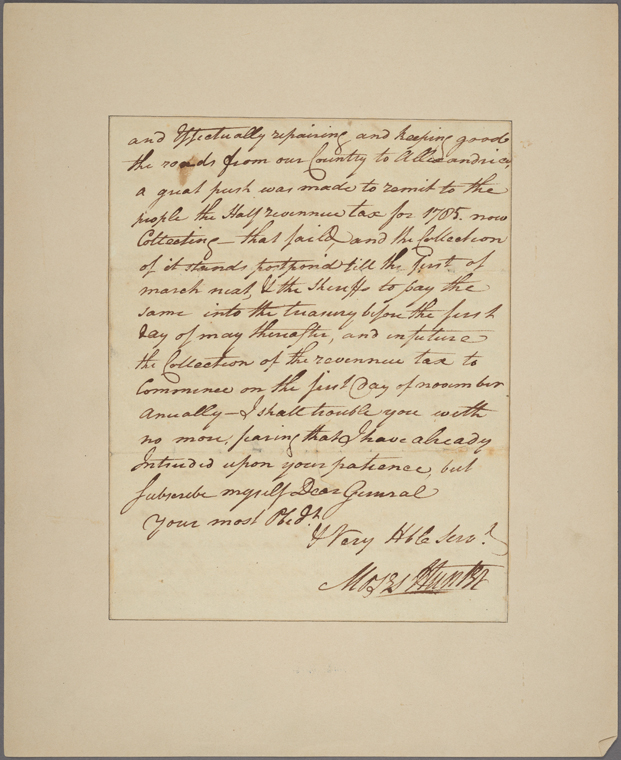 and Effectually repairing and keeping good
the roads from our Country to Allexandria,
a great push was made to remit to the
people the Half revennue tax for 1785. now
Collecting – that faild and the Collection
of it stands postpond till the first of
march next, & the Sheriffs to pay the
same into the treasury before the first
day of may thereafter, and in future
the Collection of the revennue tax to
Commence on the first Day of november
Anually – I shall trouble you with
no more, fearing that I have already
Intruded upon your patience, but
Subscribe myself Dear General
Your most Obedt
& Very Hble Servt
Moses Hunter